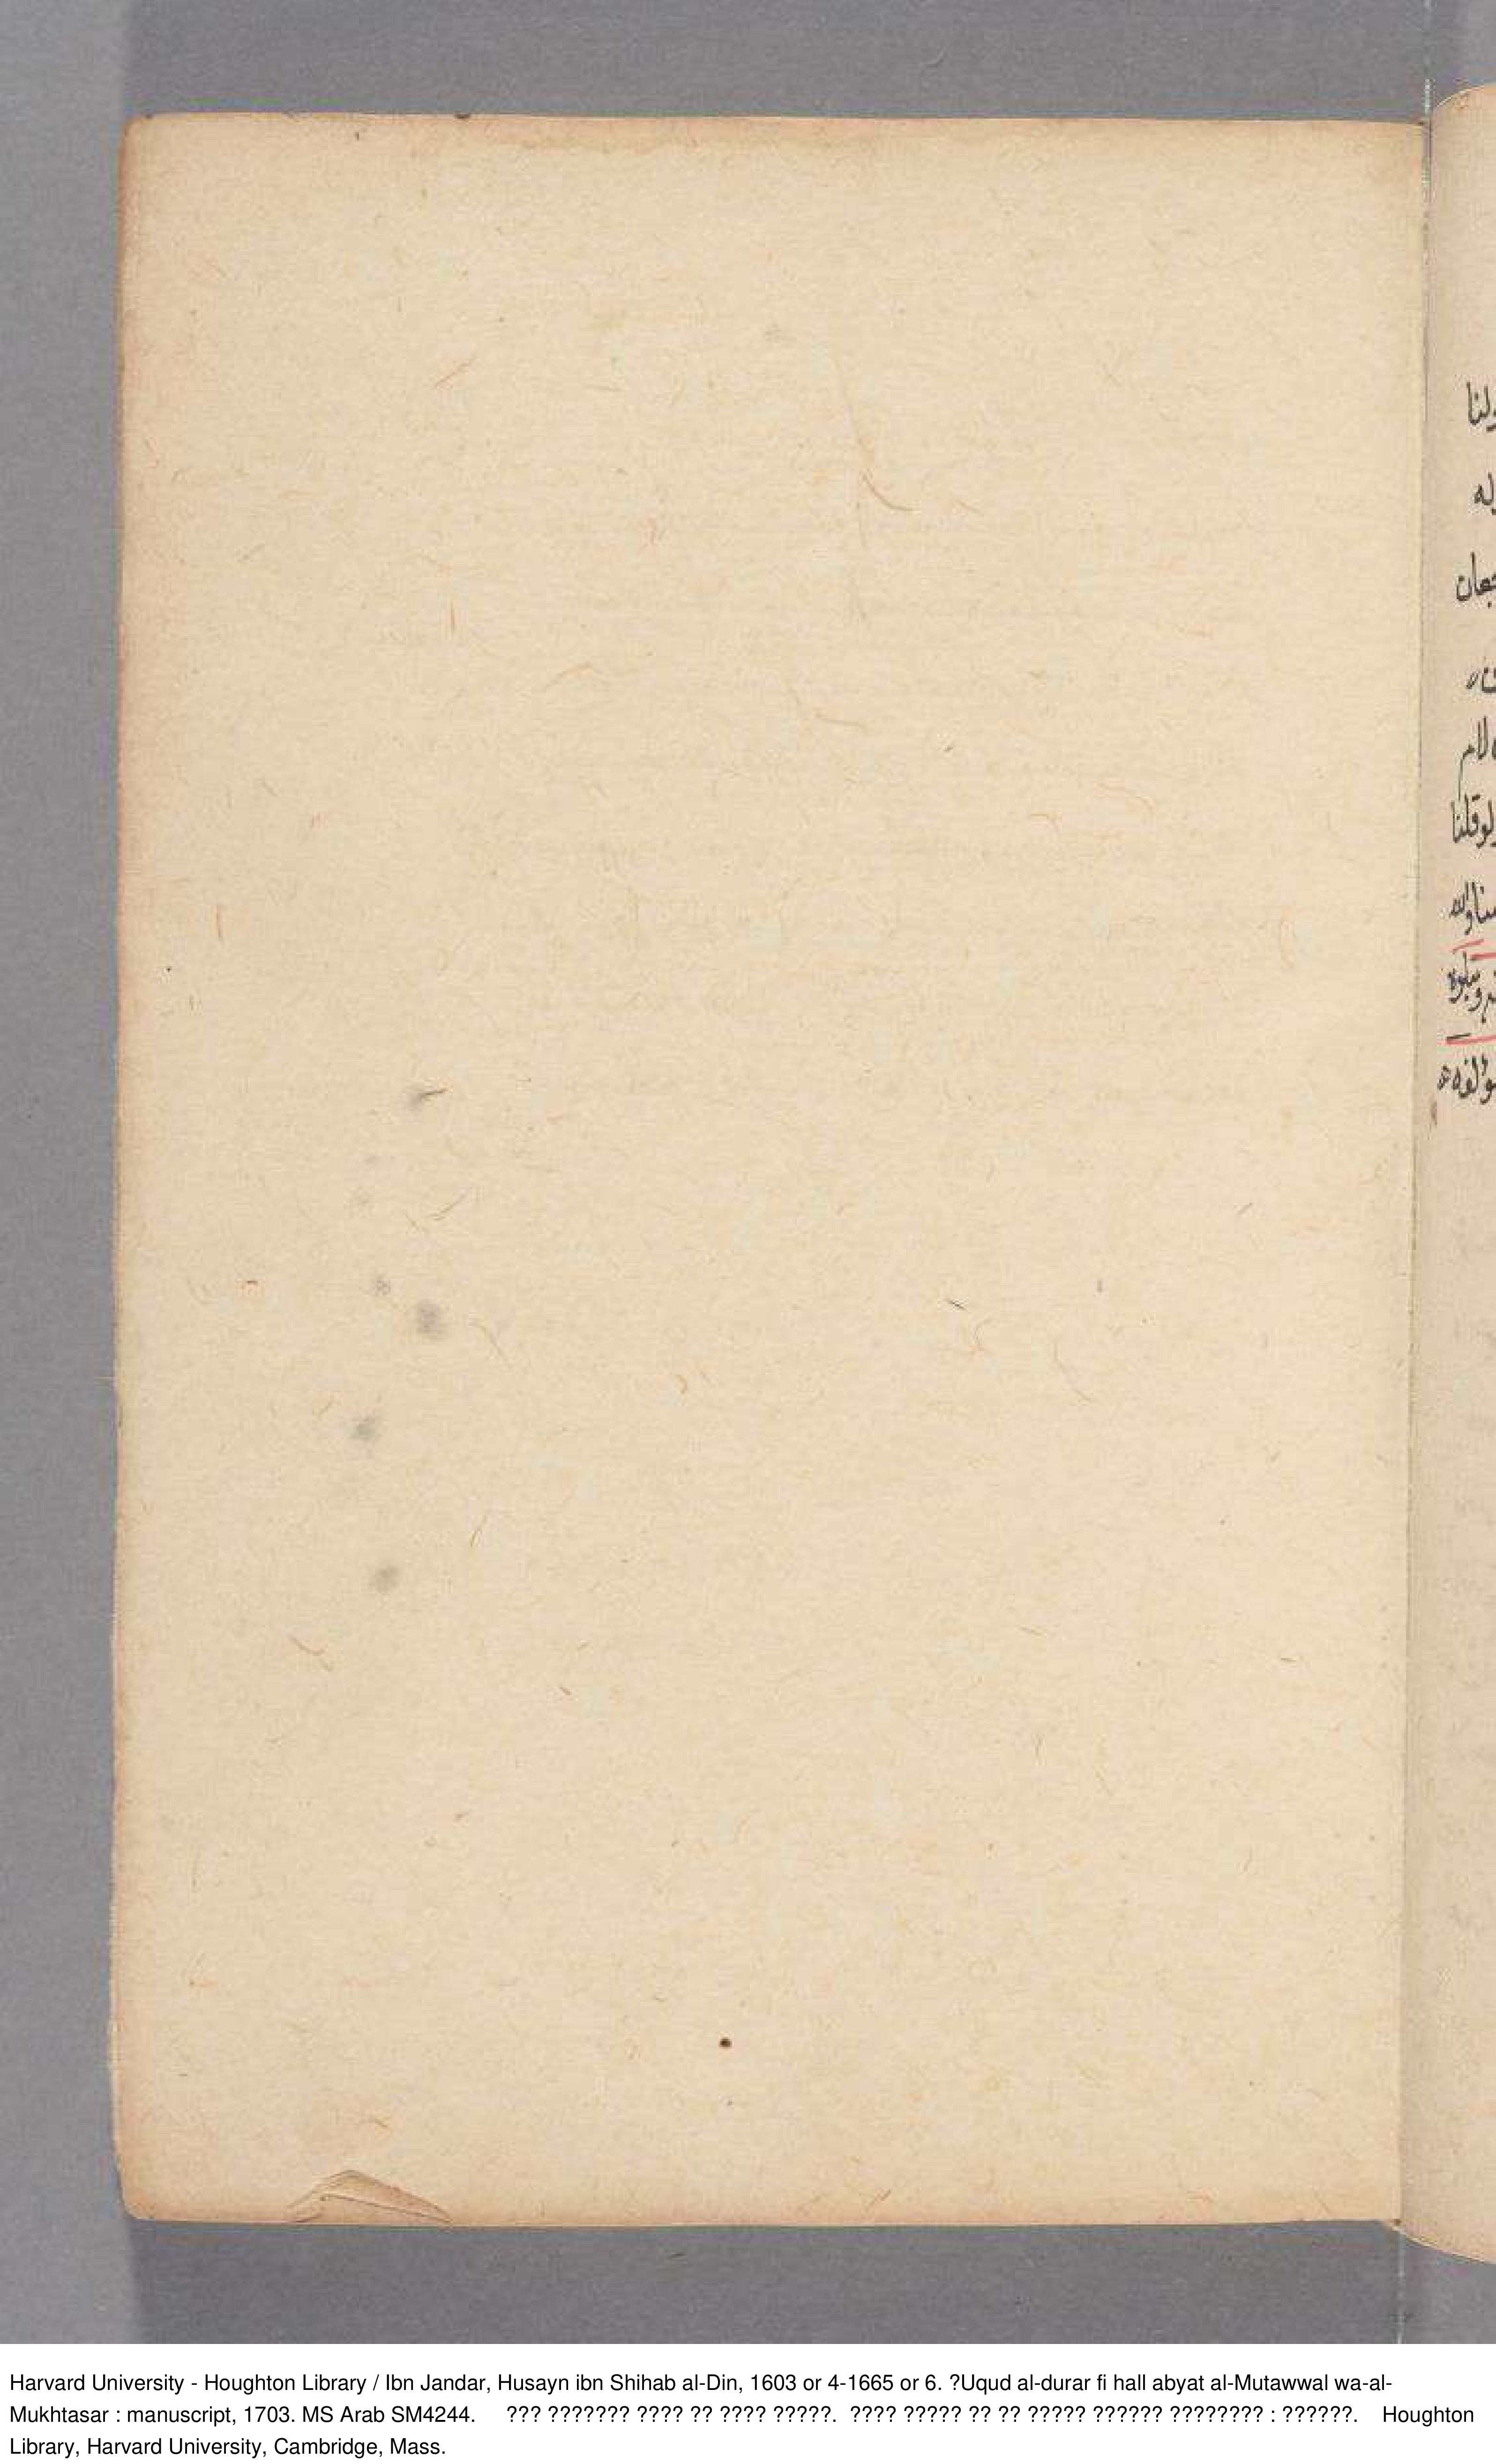 ولنا
له
جعان
لام
ولو قلنا
Harvard University - Houghton Library / Ibn Jandar, Husayn ibn Shihab al-Din, 1603 or 4-1665 or 6. ?Uqud al-durar fi hall abyat al-Mutawwal wa-al-
Mukhtasar : manuscript, 1703. MS Arab SM4244. ??? ??????? ???? ?? ???? ?????. ???? ????? ?? ?? ????? ?????? ???????? : ??????. Houghton
Library, Harvard University, Cambridge, Mass.